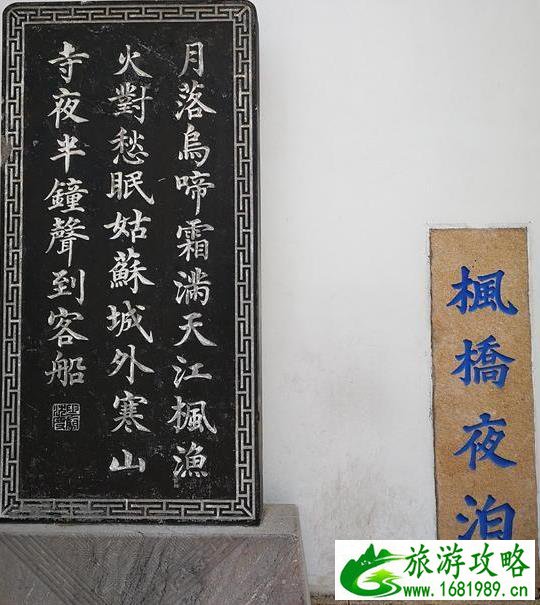 月落烏啼霜滿天江楓漁
火對愁眠姑蘇城外寒山
寺夜半鐘聲到客船
楓橋夜泊
旅游攻略
www.1681989.cn